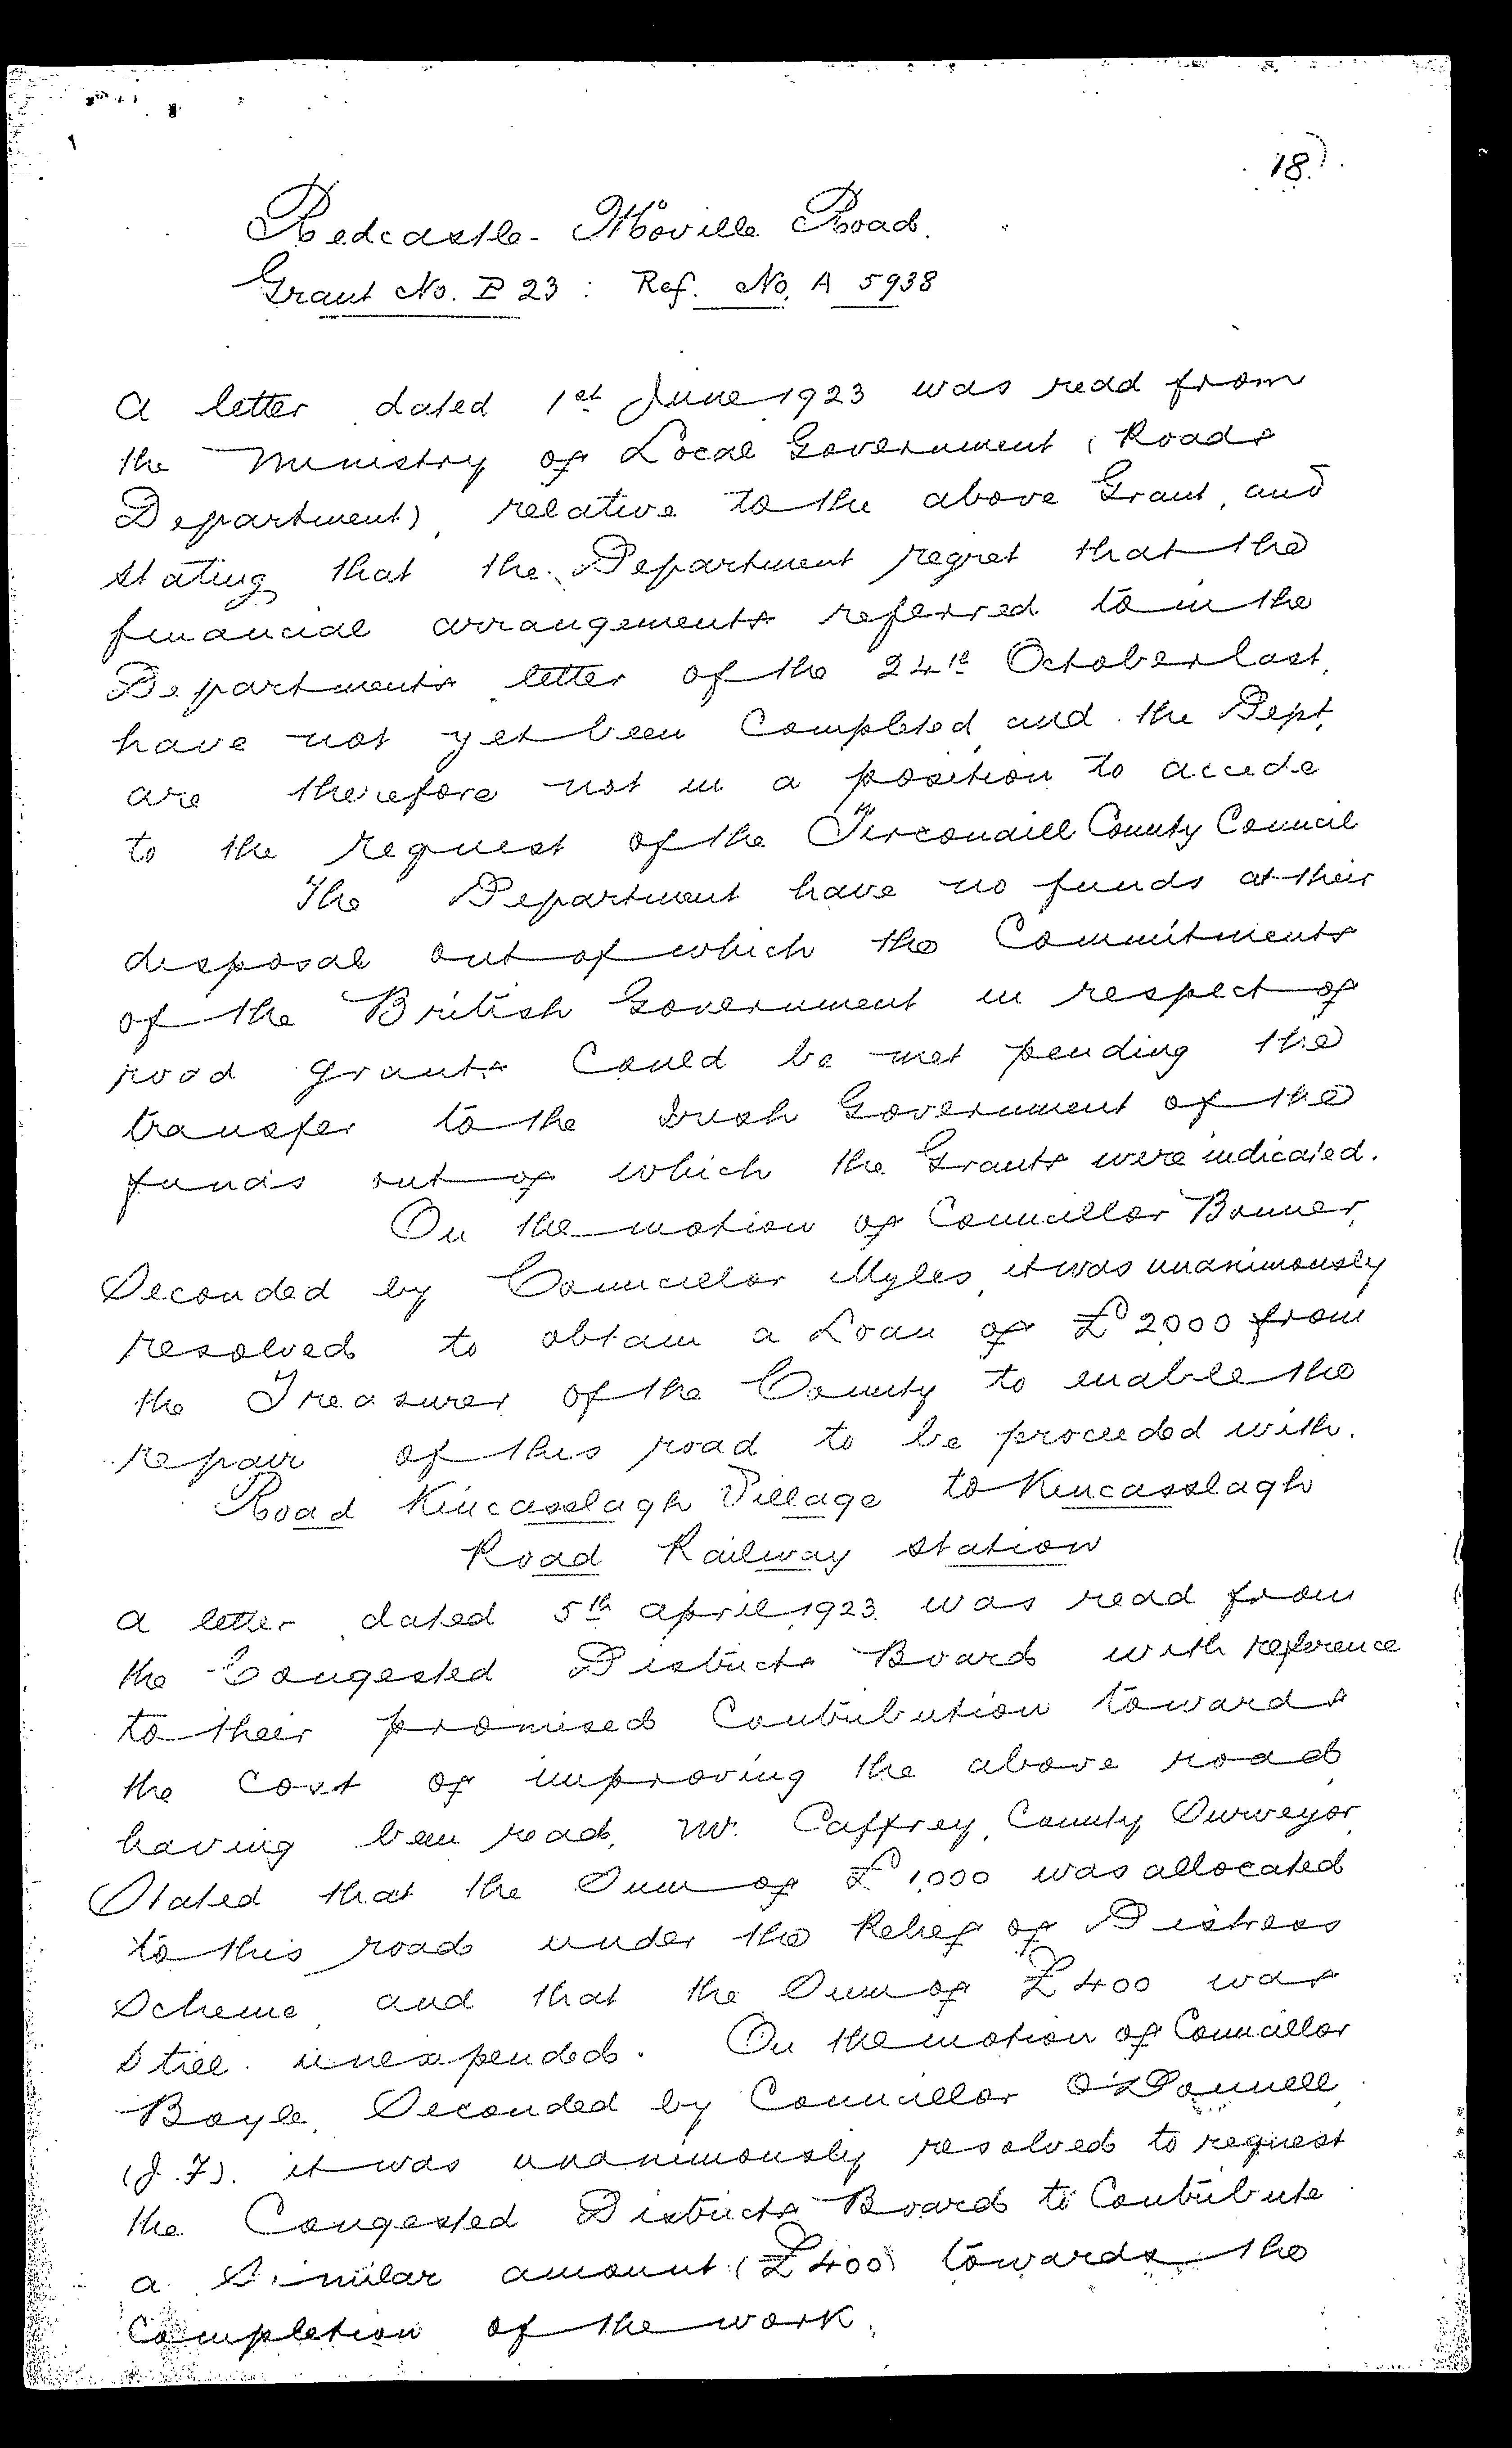 18).
Redcastle - Moville Road.
Grant No. P 23 : Ref. No. A 5938
A letter dated 1st June 1923 was read from
the Ministry of Local Government (Roads
Department), relative to the above Grant, and
stating that the Department regret that the
financial arrangements referred to in the
Departments letter of the 24th October last,
have not yet been Completed, and the Dept,
are therefore not in a position to accede
to the request of the Tirconaill County Council
The Department have no funds at their
disposal out of which the Commitments
of the British Government in respect of
road grants Could be met pending the
transfer to the Irish Government of the
funds out of which the Grants were indicated.
On the motion of Councillor Bonner,
Seconded by Councillor Myles, it was unanimously
resolved to obtain a Loan of £2000 from
the Treasurer of the County to enable the
repair of this road to be proceeded with.
Road Kincasslagh Village to Kincasslagh
Road Railway Station
A letter dated 5th April, 1923 was read from
the Congested Districts Board with reference
to their promised Contribution towards
the Cost of improving the above road
having been read, Mr. Caffrey, County Surveyor,
Stated that the Sum of £1,000 was allocated
to this road under the Relief of Distress
Scheme, and that the Sum of £400 was
Still unexpended. On the motion of Councillor
Boyle, Seconded by Councillor O'Donnell,
(J.F). it was unanimously resolved to request
the Congested Districts Board to Contribute
a Similar amount (£400) towards the
Completion of the work.